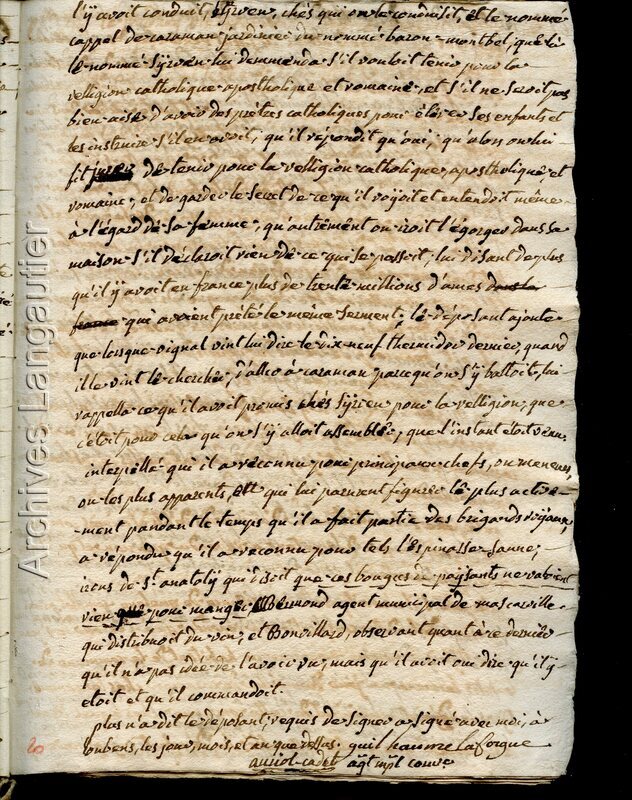 l'y avoit conduit, et syrven, chés qui on le conduisit, et le nommé
cappel de caraman jardinier du nommé baron-montbel, que là
le nommé Syrven lui demmanda s'il vouloit tenir pour la
relligion catholique apostholique et romaine, et s'il ne seroit pas
bien aise d'avoir des prétres catholiques pour éléver ses enfants et
les instruire s'il en avoit, qu'il répondit qu'oui, qu'alors on lui
fit jurer de tenir pour la relligion catholique, apostholique, et
romaine, et de garder le secret de ce qu'il voyoit et entendoit même
à l'égard de sa femme, qu'autrêment on iroit l'égorger dans sa
maison s'il déclaroit rien de ce qui se passoit, lui disant de plus
qu'il y avoit en france plus de trente millions d'ames dans la
france qui avoient prété le même serment; le déposant ajoute
que lorsque vignal vint lui dire le dix-neuf thermidor dernier, quand
il le vint le chercher, d'aller à caraman parcequ'on s'y battoit, lui
rappella ce qu'il avoit promis chés Syrven pour la relligion, que
c'étoit pour cela qu'on s'y alloit assembler, que l'instant étoit venu.
interpellé qui il a reconnu pour principaux chefs, ou meneurs,
ou les plus apparents, et qui lui parurent figurer le plus active-
ment pandant le temps qu'il a fait partie des brigands royaux,
a répondu qu'il a reconnu pour tels l'Espinasse-Saune,
de St. anatoly qui disoit que ces bougres de paysants ne valoient
rien que pour manger, Bermond agent municipal de mascarville
qui distribuoit du vin, et Bonvillard, observant quant à ce dernier
qu'il n'a pas idée de l'avoir vu, mais qu'il avoit oui dire qu'il y
étoit et qu'il commandoit.
plus n'a dit le déposant, requis de signer a signé avec moi, à
loubens, les jour, mois, et an que dessus. guilhaume laforgue
auriol-cadet agt mpl
20
Archives Langautier